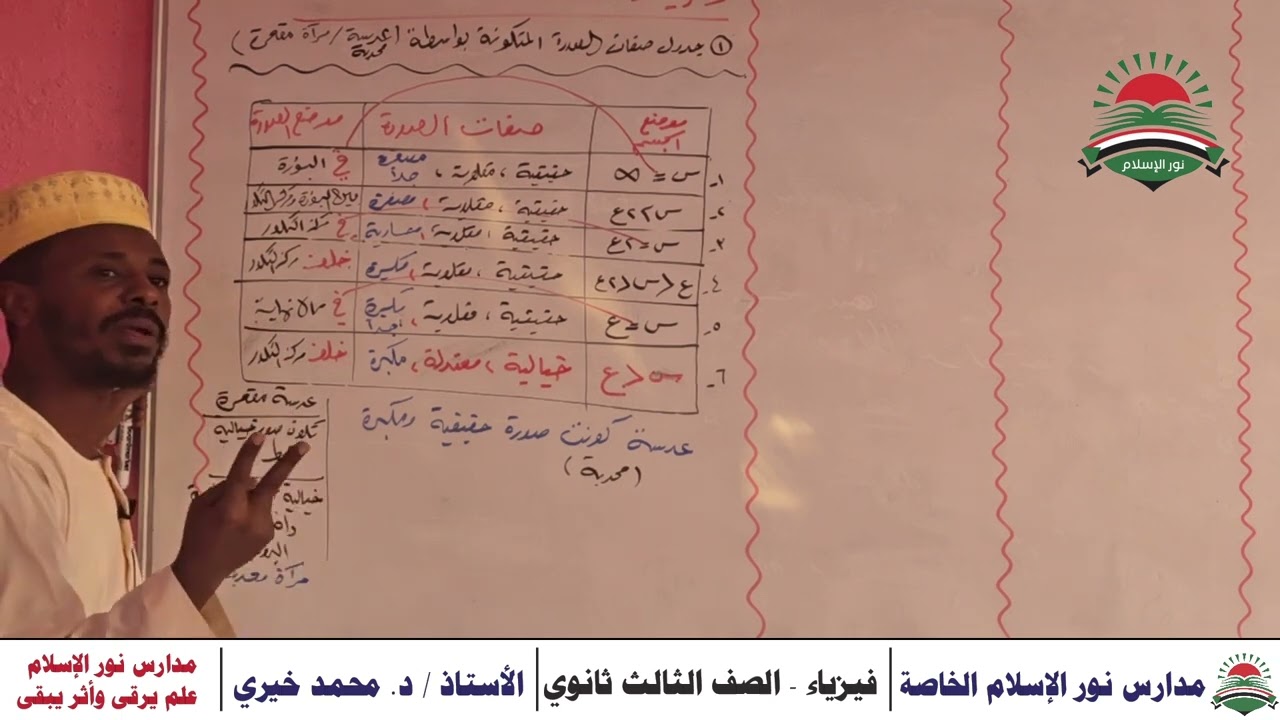 ① جدول صفات الصورة المتكونة بواسطة (عدسة محدبة / مرآة مقعرة)
موضع الجسم | صفات الصورة | موضع الصورة
١- س = ∞ | حقيقية ، مقلوبة ، مصغرة جداً | في البؤرة
٢- س > ٢ع | حقيقية ، مقلوبة ، مصغرة | بين البؤرة ومركز التكور
٣- س = ٢ع | حقيقية ، مقلوبة ، مساوية | في مركز التكور
٤- ع < س < ٢ع | حقيقية ، مقلوبة ، مكبرة | خلف مركز التكور
٥- س = ع | حقيقية ، مقلوبة ، مكبرة جداً | في مالانهاية
٦- س < ع | خيالية ، معتدلة ، مكبرة | خلف مركز التكور
عدسة كونت صورة حقيقية ومكبرة
(محدبة)
عدسة مقعرة
تكون صور خيالية
خيالية
مرآة
نور الإسلام
مدارس نور الإسلام الخاصة | فيزياء - الصف الثالث ثانوي | الأستاذ / د. محمد خيري | مدارس نور الإسلام
علم يرقى وأثر يبقى